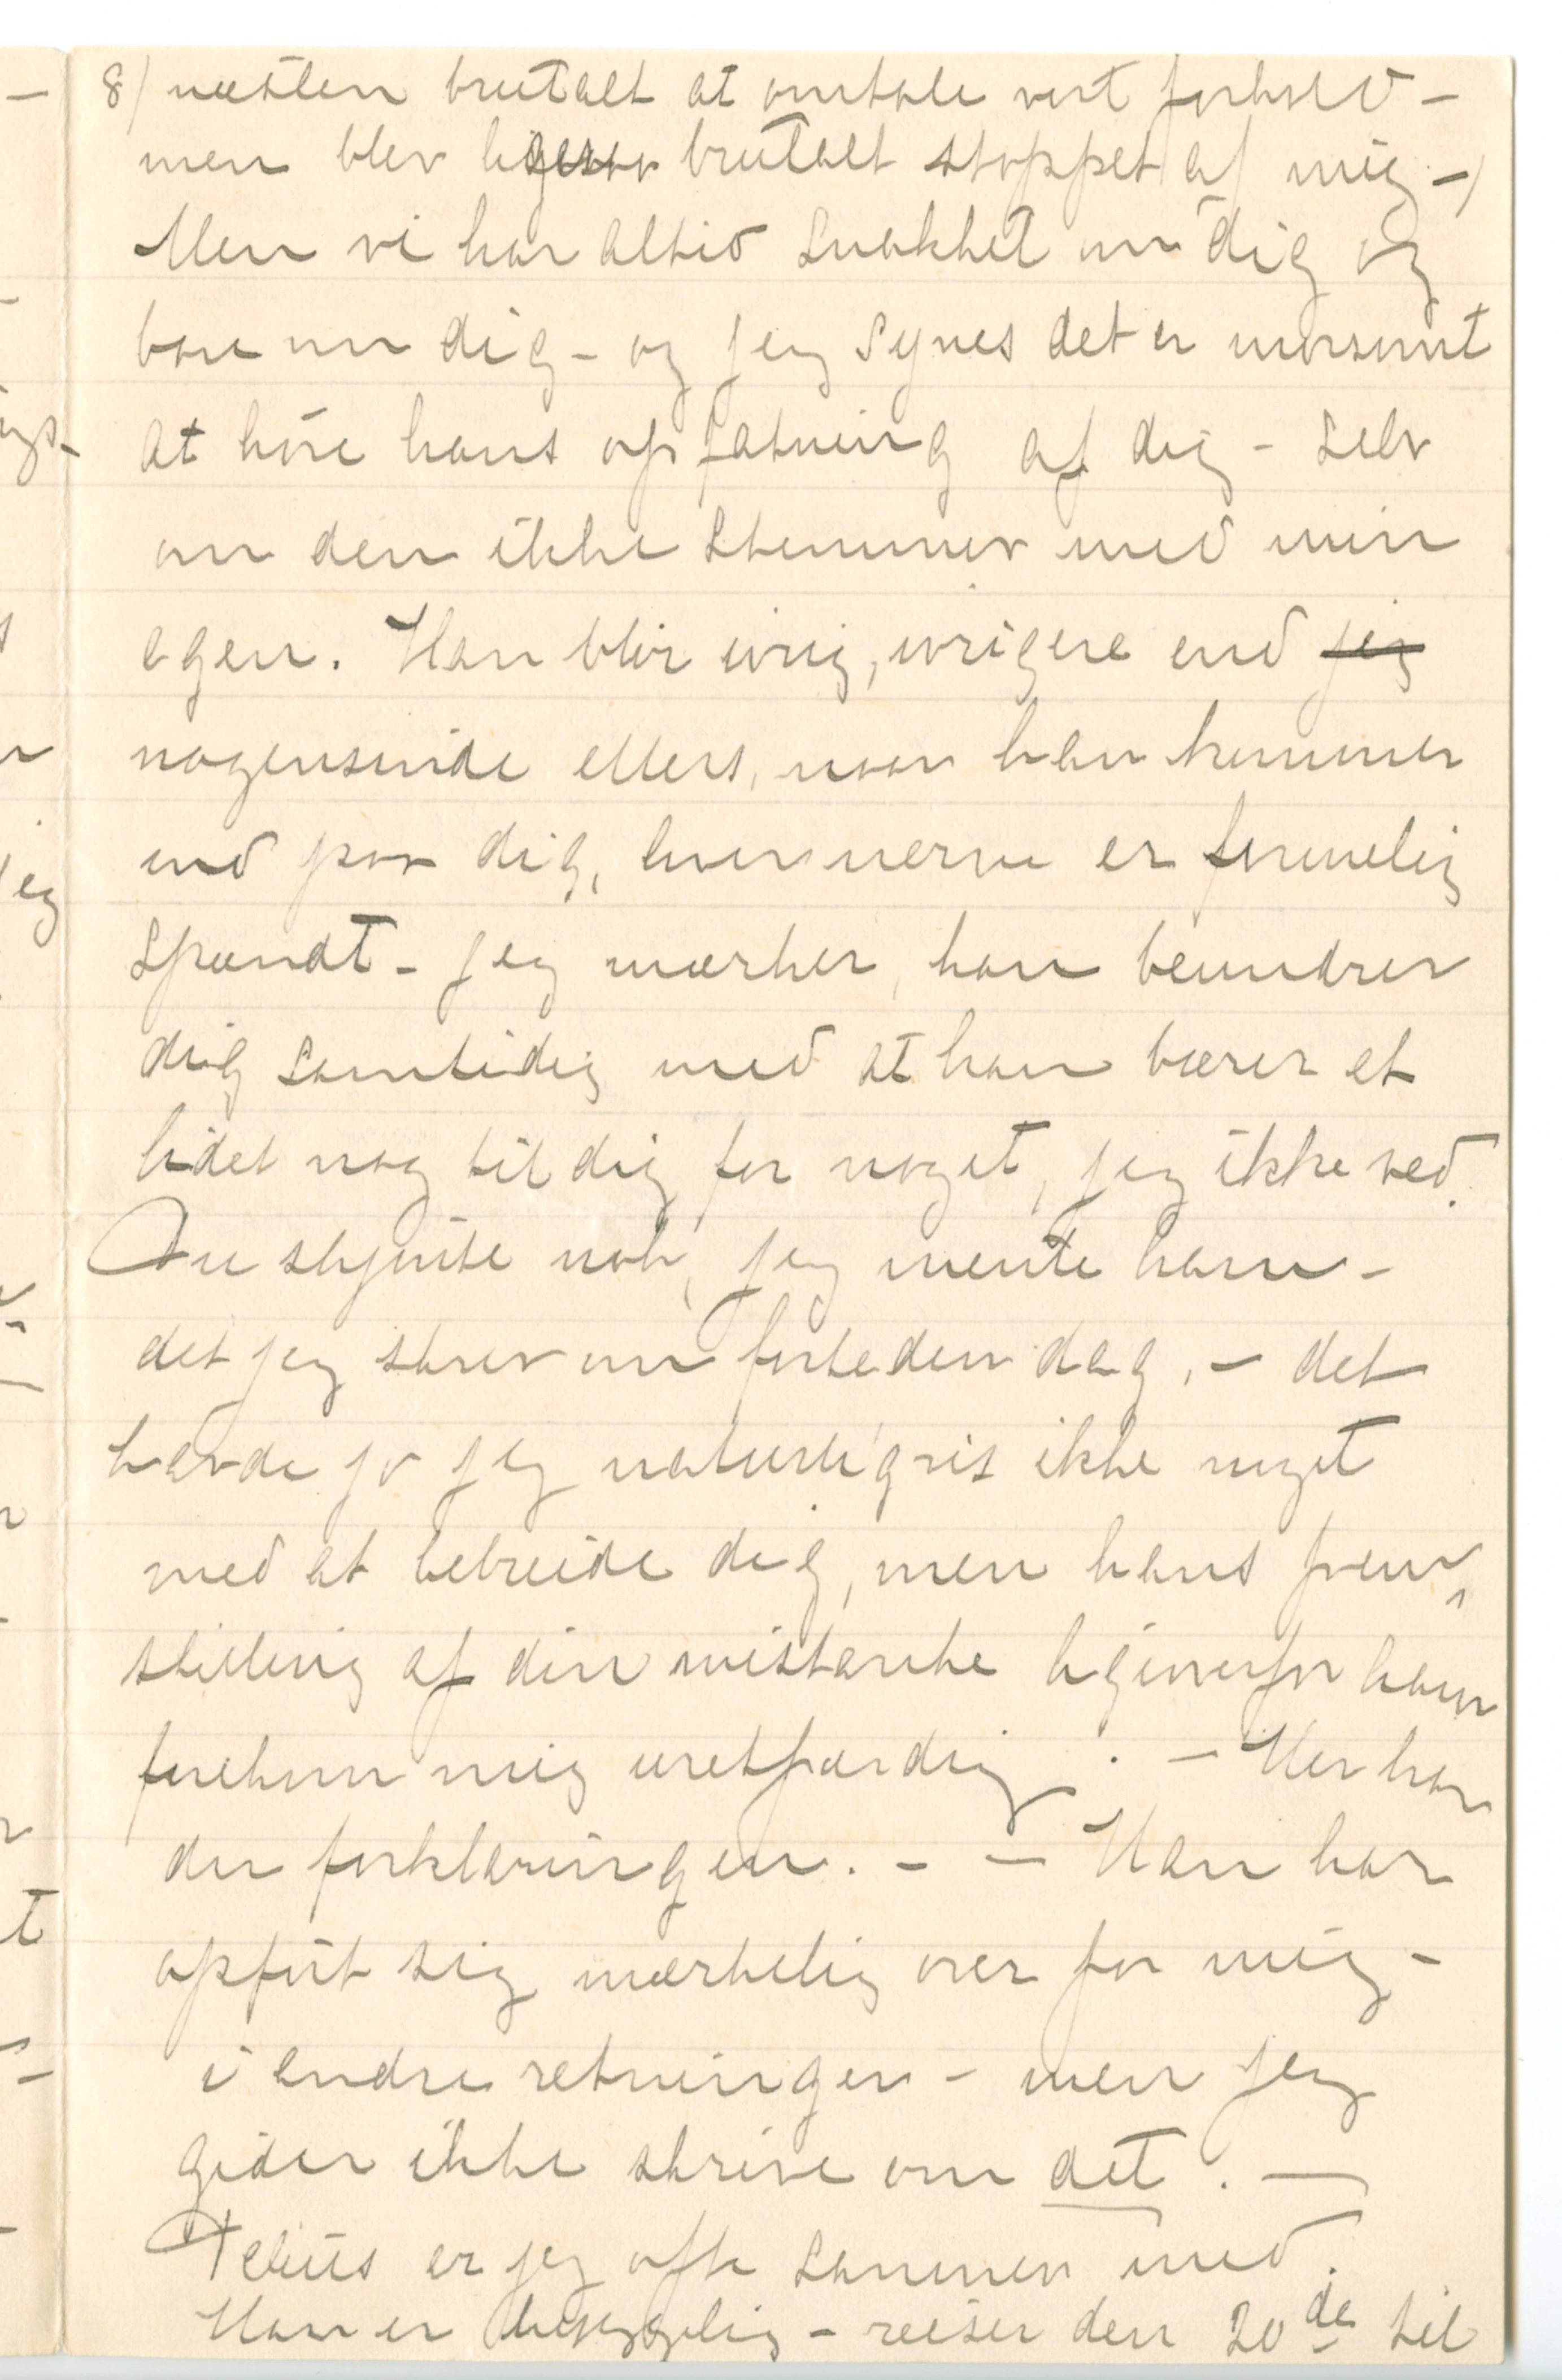 8/ næsten brutalt at omtale vort forhold –
men blev ligesaa brutalt stoppet af mig –/
Men vi har altid snakket om dig og
bare om dig – og jeg synes det er morsomt
at høre hans opfatning af dig – selv
om den ikke stemmer med min
egen. Han blir ivrig, ivrigere end jeg
nogensinde ellers, naar han kommer
ind paa dig, hver nerve er formelig
spændt – jeg mærker, han beundrer
dig samtidig med at han bærer et
lidet nag til dig for noget, jeg ikke ved.
Du skjønte nok, jeg mente ham –
det jeg skrev om forleden dag, – det
havde jo jeg naturligvis ikke noget
med at bebreide dig, men hans frem-
stilling af din mistanke ligeoverfor ham
forekom mig uretfærdig. – Her har
du forklaringen. – – Han har
opført sig mærkelig over for mig –
i andre retninger – men jeg
gider ikke skrive om det. —
er jeg ofte sammen med.
Han er hyggelig – reiser den 20de til